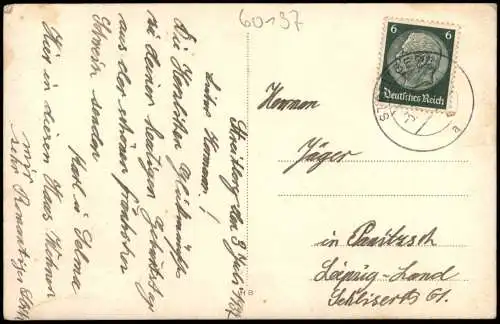 60137
6 6
Deutsches Reich
Streitberg den 8 Juli 1937
Lieber Hermann!
Die Herzlichsten Glückwünsche
zu deinem heutigen Geburtstag
aus der schönen fränkischen
Schweiz senden
Karl u Selma
Hier in diesem Haus Wohnen
wir
sehr Romantischer
Hermann
Jäger
in Panitzsch
Leipzig-Land
61.
a